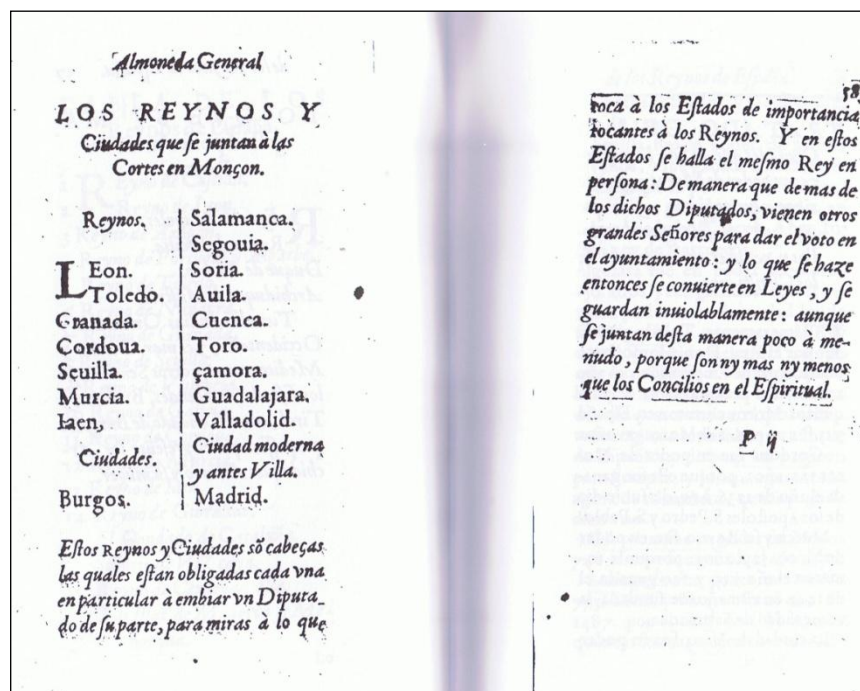 Almoneda General
LOS REYNOS Y
Ciudades que ſe juntan à las
Cortes en Monçon.
Reynos.
LEon.
Toledo.
Granada.
Cordoua.
Seuilla.
Murcia.
Iaen,
Ciudades.
Burgos.
Salamanca.
Segouia.
Soria.
Auila.
Cuenca.
Toro.
çamora.
Guadalajara.
Valladolid.
Ciudad moderna
y antes Villa.
Madrid.
Eſtos Reynos y Ciudades sõ cabeças
las quales eſtan obligadas cada vna
en particular à embiar vn Diputa
do de ſu parte, para miras à lo que
58
toca à los Eſtados de importancia,
tocantes à los Reynos. Y en eſtos
Eſtados ſe halla el meſmo Rey en
perſona: De manera que de mas de
los dichos Diputados, vienen otros
grandes Señores para dar el voto en
el ayuntamiento: y lo que ſe haze
entonces ſe conuierte en Leyes, y ſe
guardan inuiolablamente: aunque
ſe juntan deſta manera poco à me-
nudo, porque ſon ny mas ny menos
que los Concilios en el Eſpiritual.
P ij